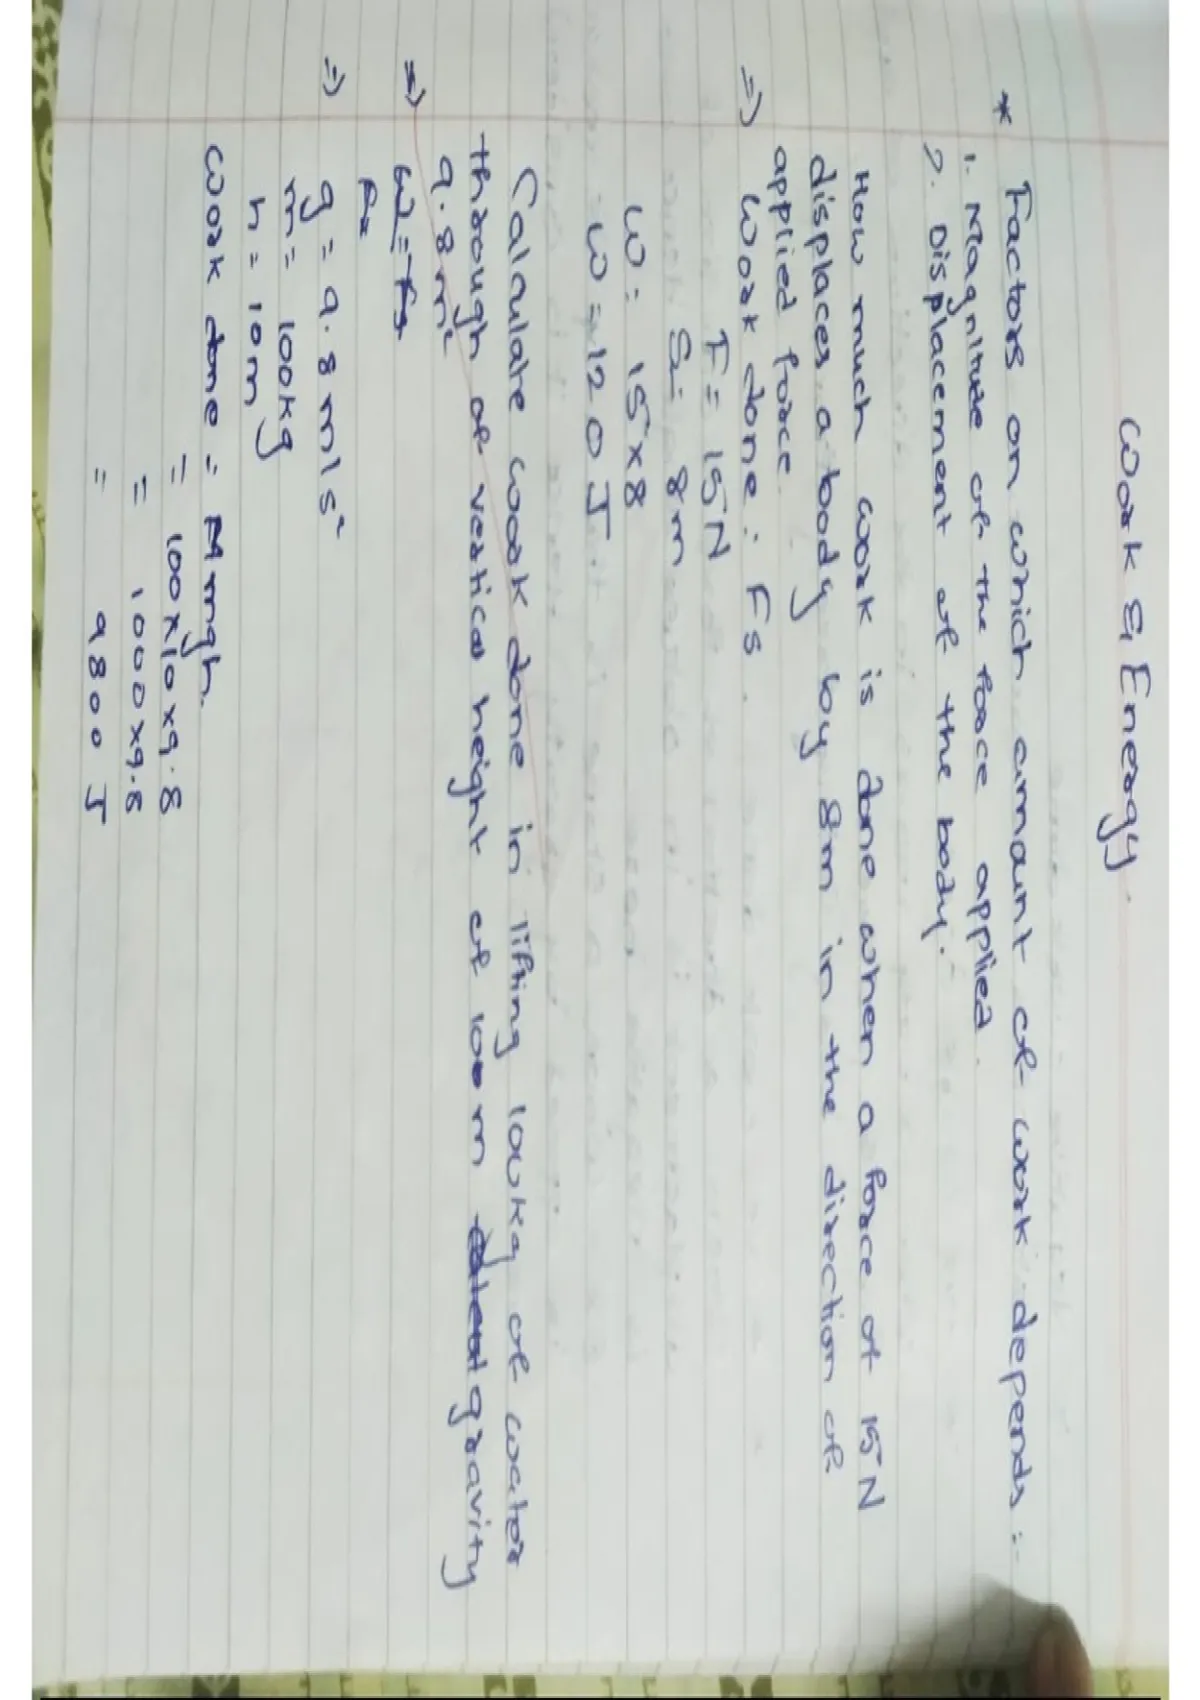 Work & Energy.
* Factors on which amount of work depends :-
1. Magnitude of the force applied.
2. Displacement of the body.
How much work is done when a force of 15N
displaces a body by 8m in the direction of
applied force.
=) Work done : Fs
F = 15N
S = 8m
W = 15×8
W = 120 J
Calculate work done in lifting 100kg of water
through of vertical height of 100m gravity
9.8m²
=) W = Fs
Fs
=) g = 9.8 m/s²
m = 100kg
h = 10m
Work done = mgh.
= 100×10×9.8
= 1000×9.8
= 9800 J